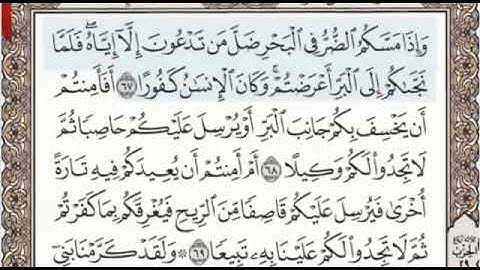 وَإِذَا مَسَّكُمُ ٱلضُّرُّ فِي ٱلۡبَحۡرِ ضَلَّ مَن تَدۡعُونَ إِلَّآ إِيَّاهُۖ فَلَمَّا
نَجَّىٰكُمۡ إِلَى ٱلۡبَرِّ أَعۡرَضۡتُمۡۚ وَكَانَ ٱلۡإِنسَٰنُ كَفُورًا ٦٧ أَفَأَمِنتُمۡ
أَن يَخۡسِفَ بِكُمۡ جَانِبَ ٱلۡبَرِّ أَوۡ يُرۡسِلَ عَلَيۡكُمۡ حَاصِبٗا ثُمَّ
لَا تَجِدُواْ لَكُمۡ وَكِيلًا ٦٨ أَمۡ أَمِنتُمۡ أَن يُعِيدَكُمۡ فِيهِ تَارَةً
أُخۡرَىٰ فَيُرۡسِلَ عَلَيۡكُمۡ قَاصِفٗا مِّنَ ٱلرِّيحِ فَيُغۡرِقَكُم بِمَا كَفَرۡتُمۡ
ثُمَّ لَا تَجِدُواْ لَكُمۡ عَلَيۡنَا بِهِۦ تَبِيعٗا ٦٩ ۞ وَلَقَدۡ كَرَّمۡنَا بَنِيٓ
الحزب
٢٩